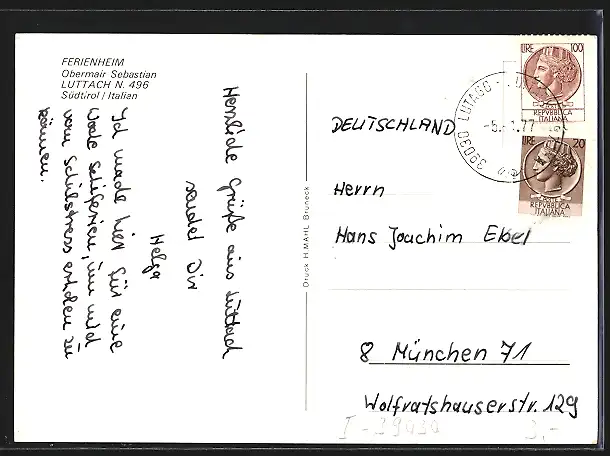 FERIENHEIM
Obermair Sebastian
LUTTACH N. 496
Südtirol / Italien
Herzliche Grüße aus Luttach
sendet Dir
Helga
Ich mache hier für eine
Woche Schiferien, um mich
vom Schulstress erholen zu
können.
Druck H. MAHL Bruneck
LIRE 100
REPVBBLICA
ITALIANA
LIRE 20
POSTE
REPVBBLICA
ITALIANA
39030 LUTAGO
77
DEUTSCHLAND
Herrn
Hans Joachim Ebel
8 München 71
Wolfratshauserstr. 129
I-39030
3,-